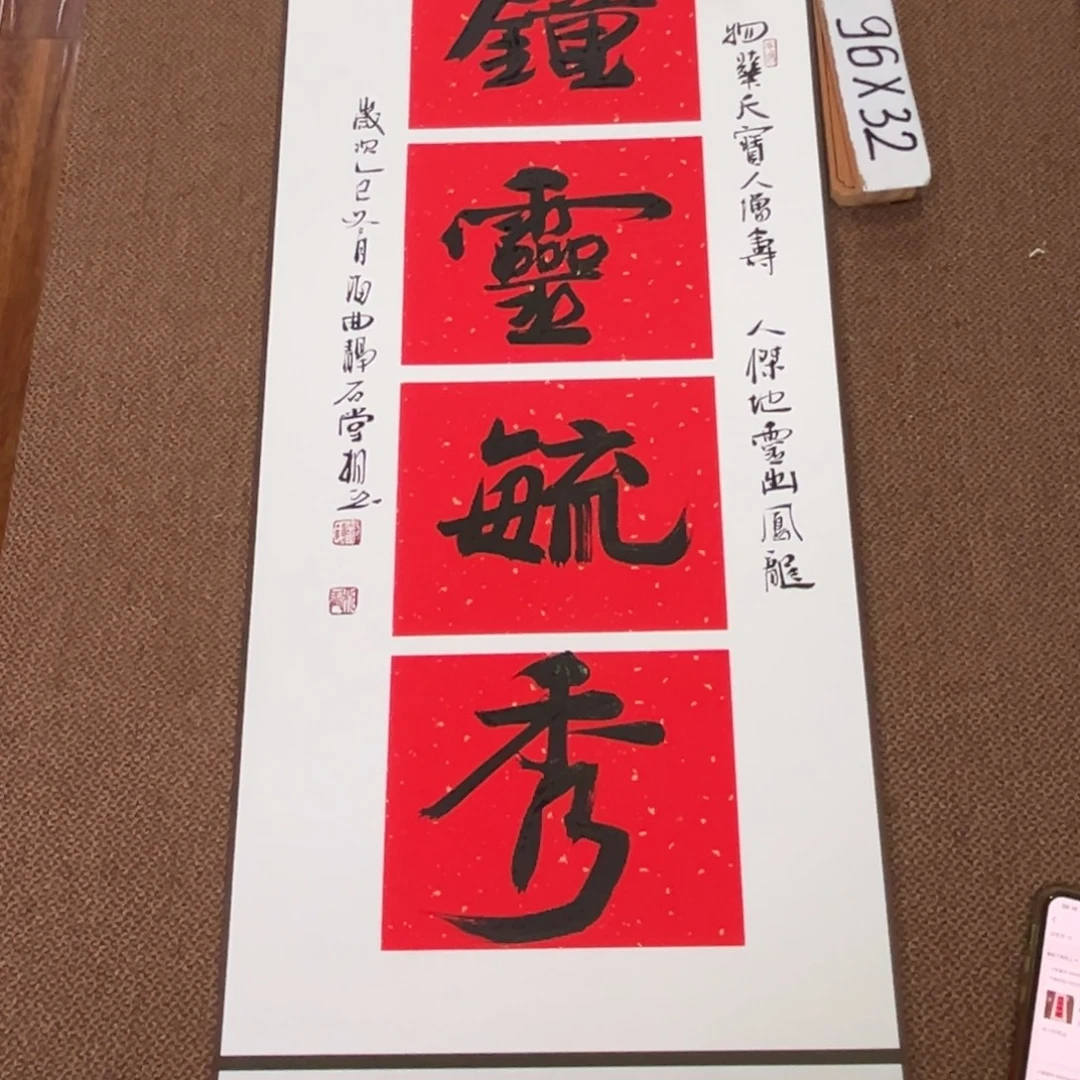 鐘
靈
毓
秀
物華天寶人增壽 人傑地靈出鳳龍
歲次乙巳冬月 曲靜石堂
96X32